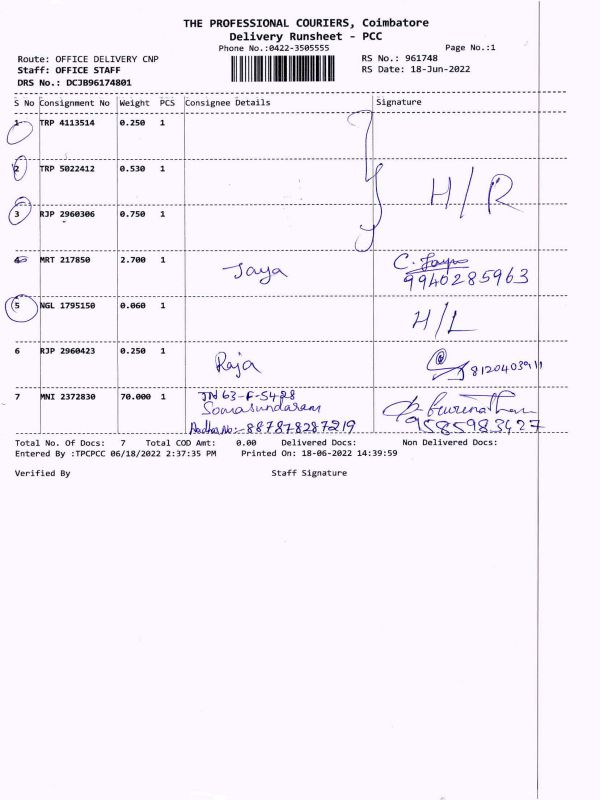 THE PROFESSIONAL COURIERS, Coimbatore
Delivery Runsheet - PCC
Phone No.:0422-3505555 Page No.:1
Route: OFFICE DELIVERY CNP RS No.: 961748
Staff: OFFICE STAFF RS Date: 18-Jun-2022
DRS No.: DCJB96174801
S No Consignment No Weight PCS Consignee Details Signature
1 TRP 4113514 0.250 1
2 TRP 5022412 0.530 1
H/R
3 RJP 2960306 0.750 1
4 MRT 217850 2.700 1 Jaya C. Jaya
9940285963
5 NGL 1795150 0.060 1 H/L
6 RJP 2960423 0.250 1 Raja 8120403911
7 MNI 2372830 70.000 1 TN 63-F-5428
Somasundaram
Aadhar No:- 887878287219 9585983427
Total No. Of Docs: 7 Total COD Amt: 0.00 Delivered Docs: Non Delivered Docs:
Entered By :TPCPCC 06/18/2022 2:37:35 PM Printed On: 18-06-2022 14:39:59
Verified By Staff Signature